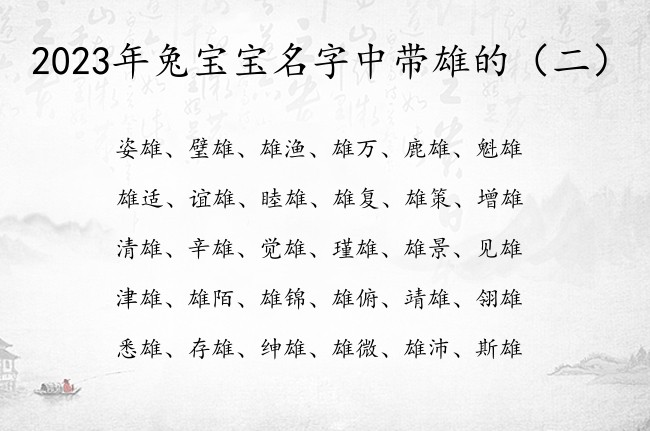 2023年兔宝宝名字中带雄的（二）
姿雄、璧雄、雄渔、雄万、鹿雄、魁雄
雄适、谊雄、睦雄、雄复、雄策、增雄
清雄、辛雄、觉雄、瑾雄、雄景、见雄
津雄、雄陌、雄锦、雄俯、靖雄、翎雄
悉雄、存雄、绅雄、雄微、雄沛、斯雄